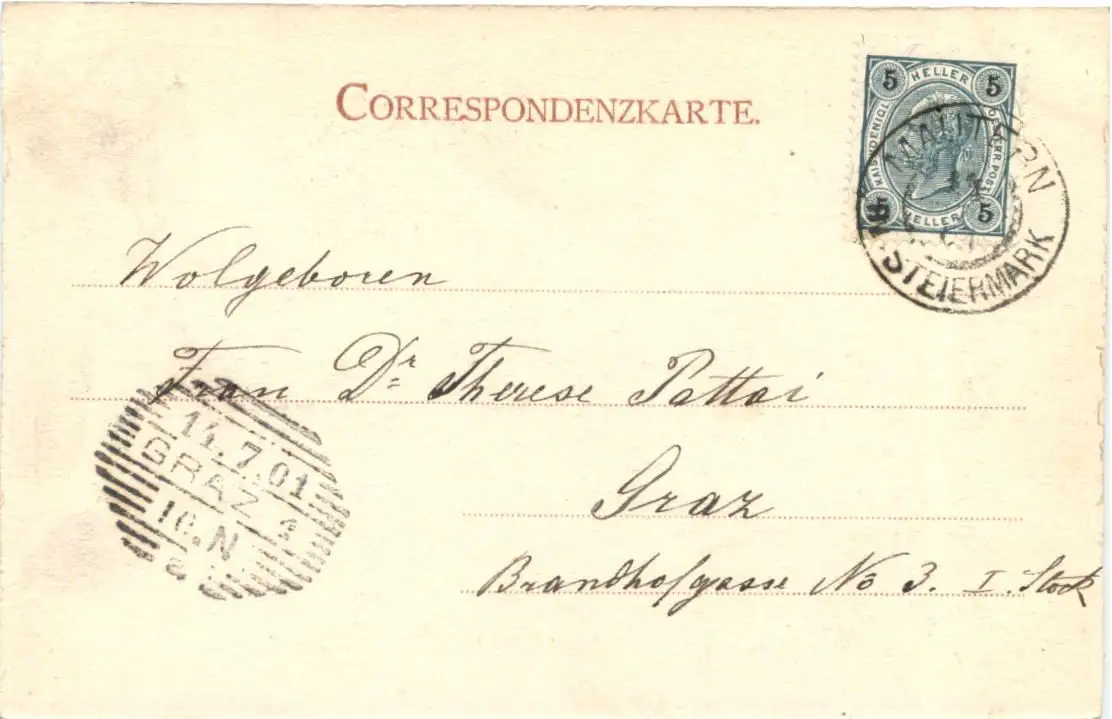 CORRESPONDENZKARTE.
5 HELLER 5
KAIS. KOENIGL.
OESTERR. POST
5 HELLER 5
MAUTERN
STEIERMARK
Wolgeboren
Frau Dr Therese Pattai
14.7.01
GRAZ 1
10.N
Graz
Brandhofgasse No 3. I. Stock